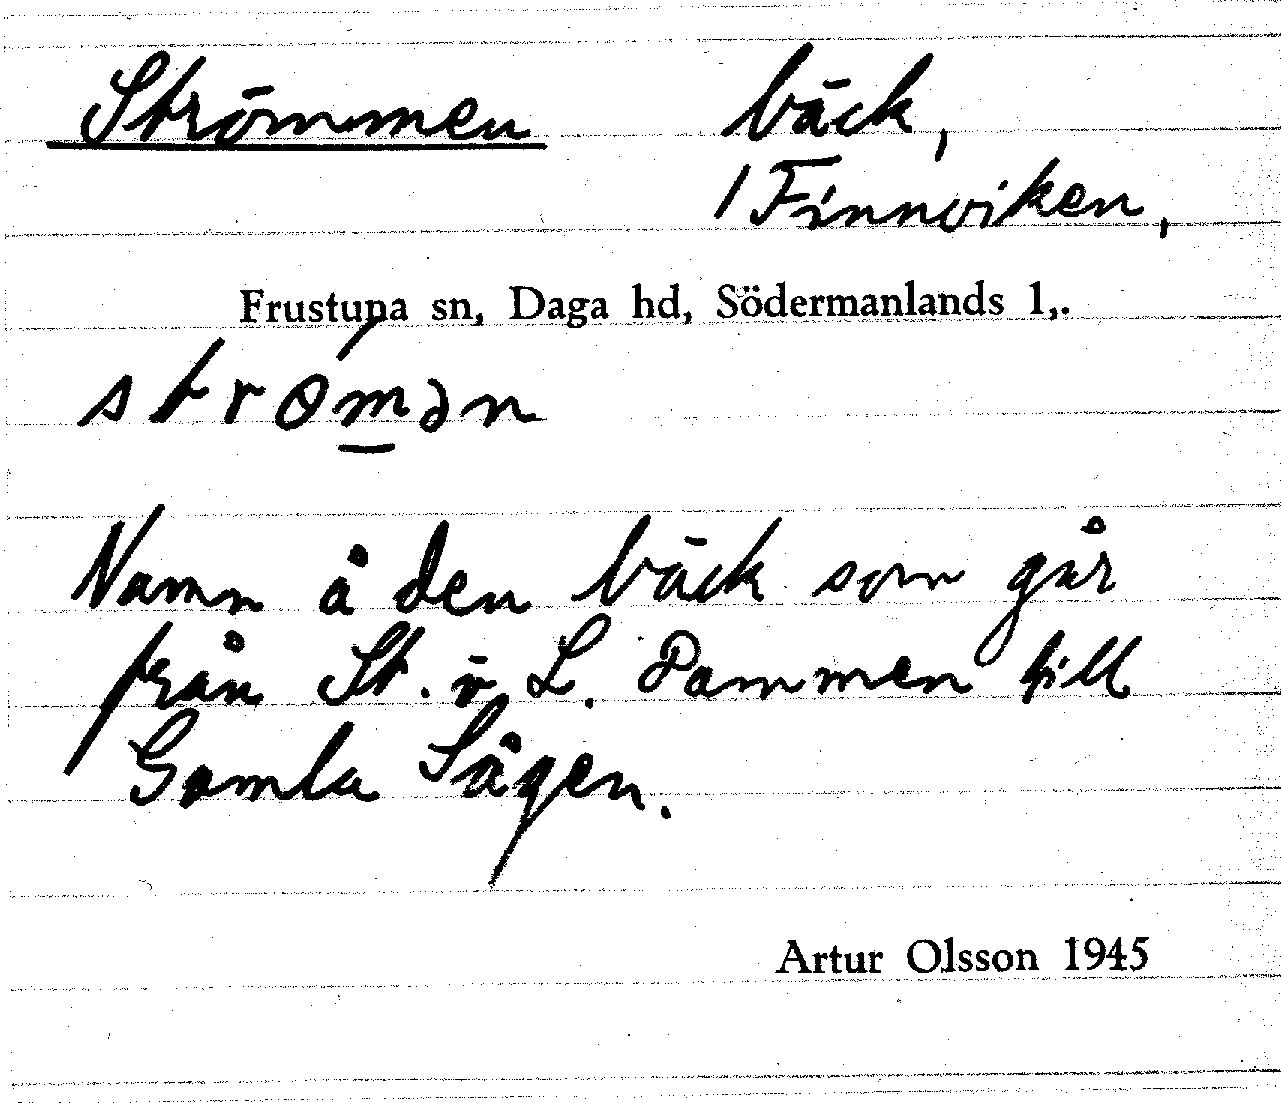 Strömmen bäck,
1 Finnviken,
Frustuna sn, Daga hd, Södermanlands l,.
strømən
Namn å den bäck som går
från St. o. L. Dammen till
Gamla Sågen.
Artur Olsson 1945